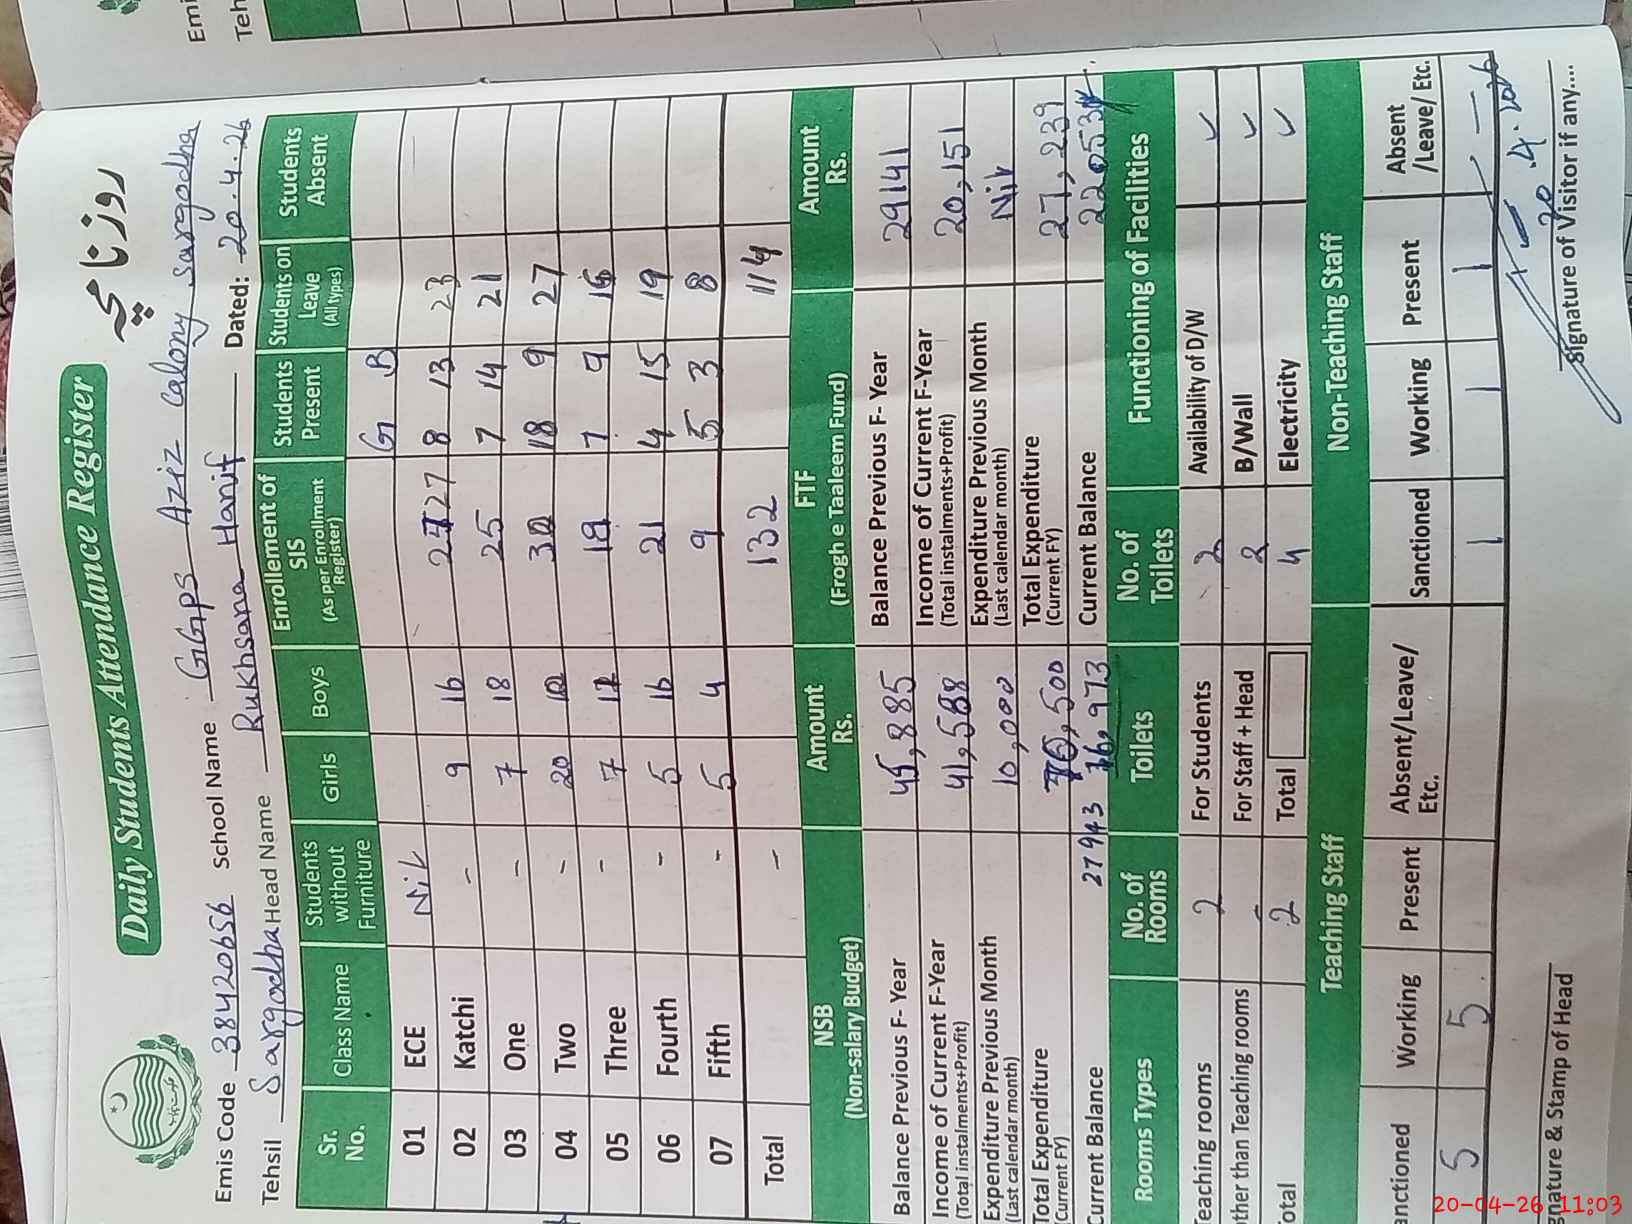 Daily Students Attendance Register
روزنامچہ
Emis Code 38420656 School Name GGPS Aziz Calony sargodha
Tehsil Sargodha Head Name Rukhsana Hanif Dated: 20.4.26
Sr. No. Class Name Students without Furniture Girls Boys Enrollement of SIS (As per Enrollment Register) Students Present Students on Leave (All types) Students Absent
G B
01 ECE Nil
02 Katchi - 9 16 27 8 13 23
03 One - 7 18 25 7 14 21
04 Two - 20 30 18 9 27
05 Three - 7 19 7 9 16
06 Fourth - 5 16 21 4 15 19
07 Fifth - 5 4 9 5 3 8
Total - 132 114
NSB (Non-salary Budget) Amount Rs. FTF (Frogh e Taaleem Fund) Amount Rs.
Balance Previous F- Year 45,885 Balance Previous F- Year 29141
Income of Current F-Year 41,588 Income of Current F-Year 20,151
(Total instalments+Profit) (Total instalments+Profit)
Expenditure Previous Month 10,000 Expenditure Previous Month Nil
(Last calendar month) (Last calendar month)
Total Expenditure ,500 Total Expenditure 27,239
(Current FY) (Current FY)
Current Balance 27943 16,973 Current Balance
Rooms Types No. of Rooms Toilets No. of Toilets Functioning of Facilities
Teaching rooms 2 For Students 2 Availability of D/W ✓
ther than Teaching rooms - For Staff + Head 2 B/Wall ✓
otal 2 Total 4 Electricity ✓
Teaching Staff Non-Teaching Staff
anctioned Working Present Absent/Leave/ Etc. Sanctioned Working Present Absent /Leave/ Etc.
5 5 1 1 1 -
20.4.2026
gnature & Stamp of Head Signature of Visitor if any....
20-04-26 11:03
Emi
Teh